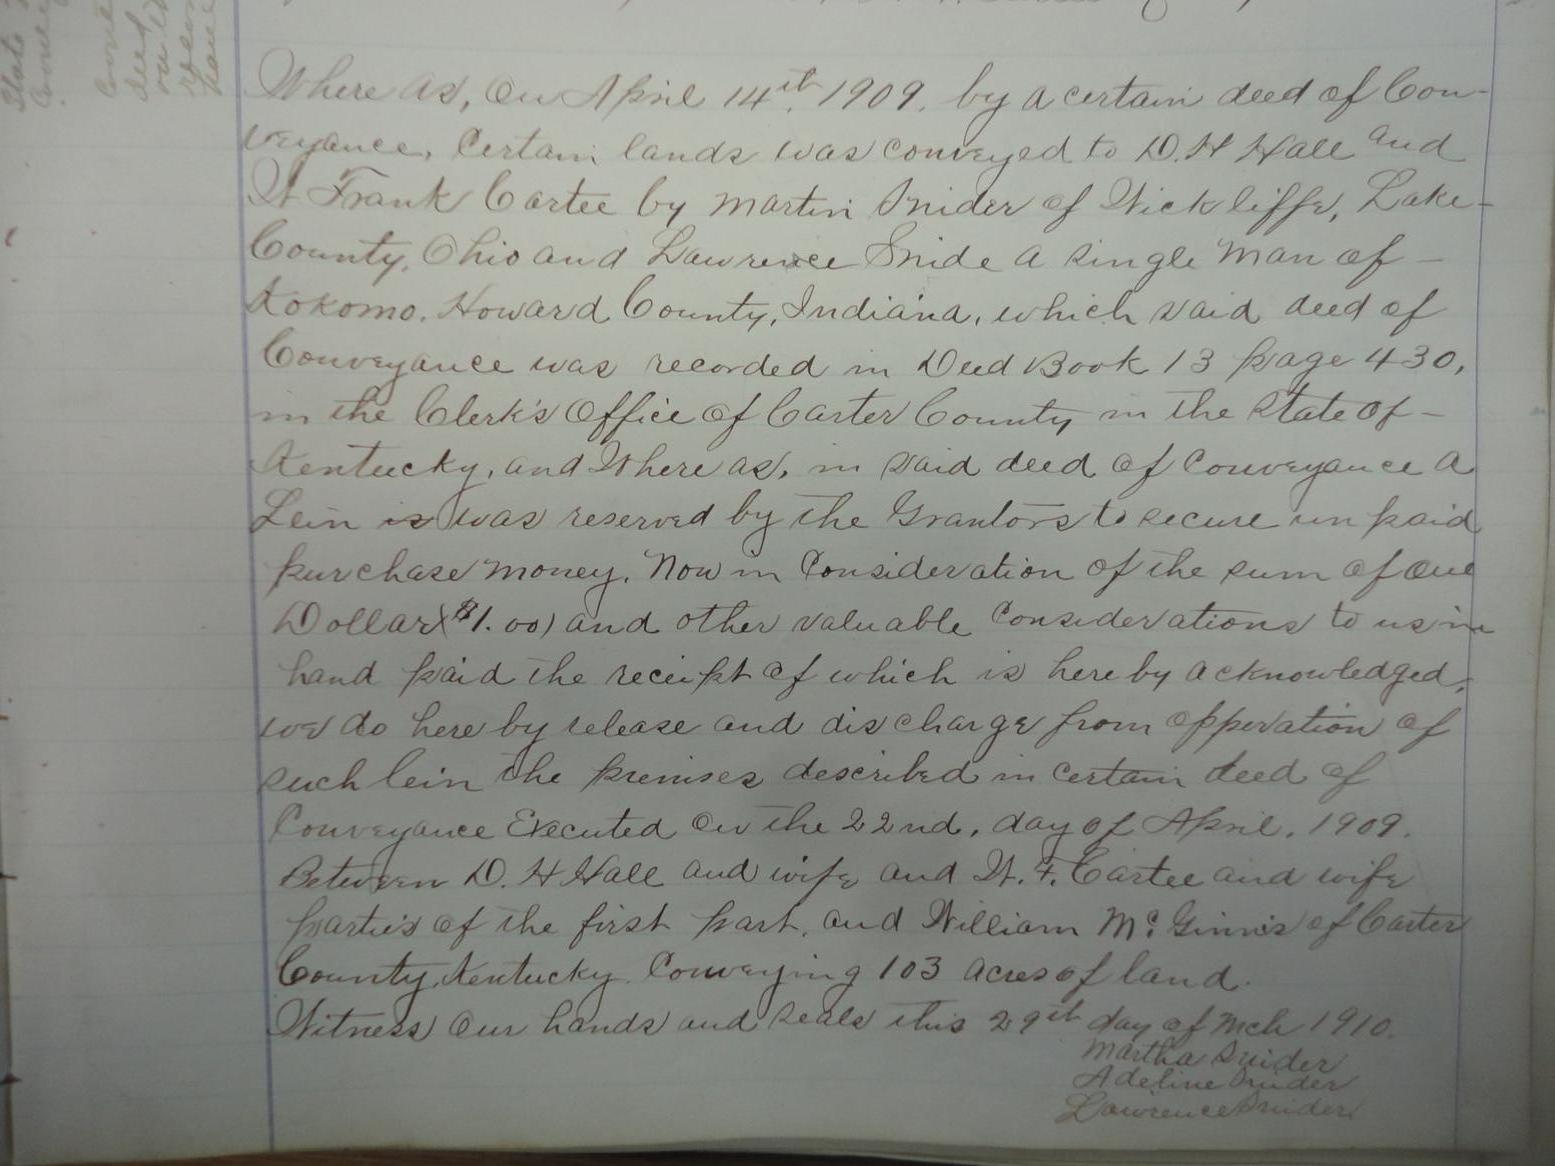 Where as, On April 14th. 1909. by a certain deed of Con-
veyance, Certain lands was conveyed to D. H Hall and
W Frank Cartee by Martin Snider of Wickliffe, Lake-
County, Ohio and Lawrence Snide a single man of -
Kokomo. Howard County, Indiana, which said deed of
Conveyance was recorded in Deed Book 13 page 430,
in the Clerk's Office of Carter County in the State of -
Kentucky, and Where as, in said deed of conveyance a
Lein is was reserved by the Grantors to secure un paid
purchase money. Now in Consideration of the sum of one
Dollar ($1.00) and other valuable Considerations to us in
hand paid the receipt of which is here by acknowledged,
we do here by release and discharge from opperation of
such lein the premises described in certain deed of
Conveyance Executed on the 22nd, day of April, 1909.
Between D. H Hall and wife and W. F. Cartee and wife
partie's of the first part, and William McGinnis of Carter
County, Kentucky. Conveying 103 acres of land.
Witness Our hands and seals this 29th day of Mch 1910.
Martha Snider
Adeline Snider
Lawrence Snider